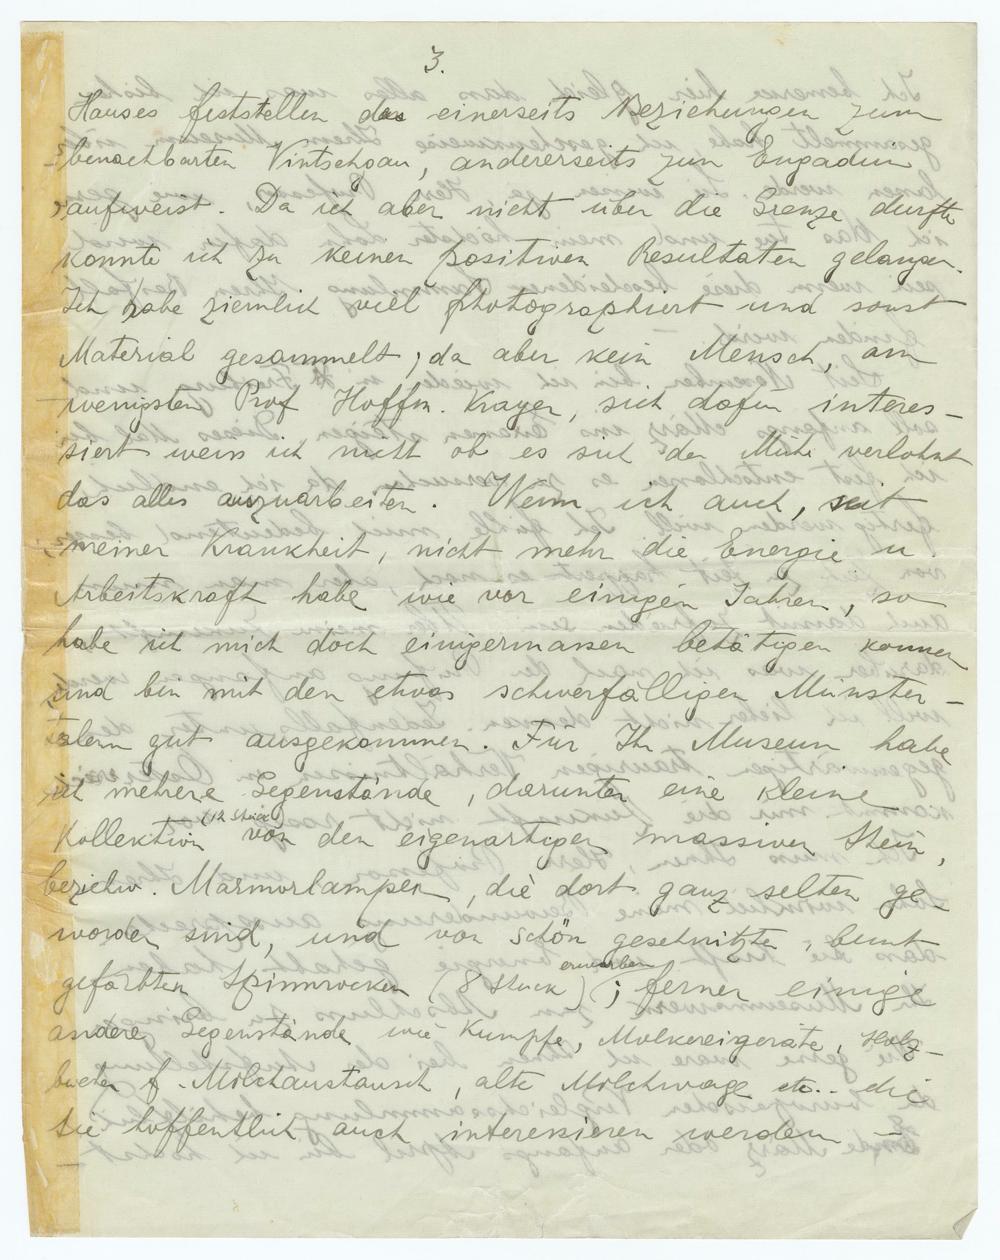 3.
Hauses feststellen das einerseits Beziehungen zum
benachbarten Vintschgau, andererseits zum Engadin
aufweist. Da ich aber nicht über die Grenze durfte
konnte ich zu keinen positiven Resultaten gelangen.
Ich habe ziemlich viel photographiert und sonst
Material gesammelt; da aber kein Mensch, am
wenigsten Prof Hoffm. Krayer, sich dafür interes-
siert weiss ich nicht ob es sich der Mühe verlohnt
das alles auszuarbeiten. Wenn ich auch, seit
meiner Krankheit, nicht mehr die Energie u.
Arbeitskraft habe wie vor einigen Jahren, so
habe ich mich doch einigermassen betätigen können
und bin mit den etwas schwerfälligen Münster-
talern gut ausgekommen. Für Ihr Museum habe
ich mehrere Gegenstände, darunter eine kleine
Kollektion (12 Stück) von den eigenartigen massiven Stein,
beziehw. Marmorlampen, die dort ganz selten ge
worden sind, und von schön geschnitzten, bunt
gefärbten Spinnrocken (8 Stück) erworben; ferner einige
andere Gegenstände wie Kumpfe, Molkereigeräte, Holz-
f. Milchaustausch, alte Milchwage etc.. die
Sie hoffentlich auch interessieren werden –